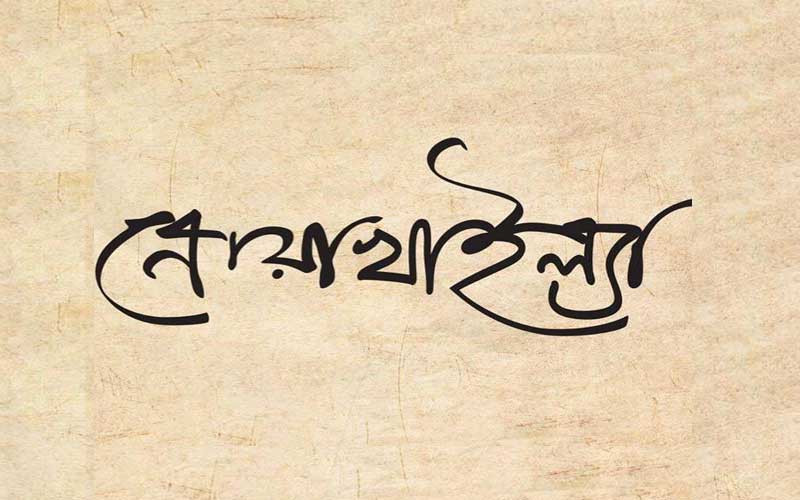 নোয়াখাইল্যা